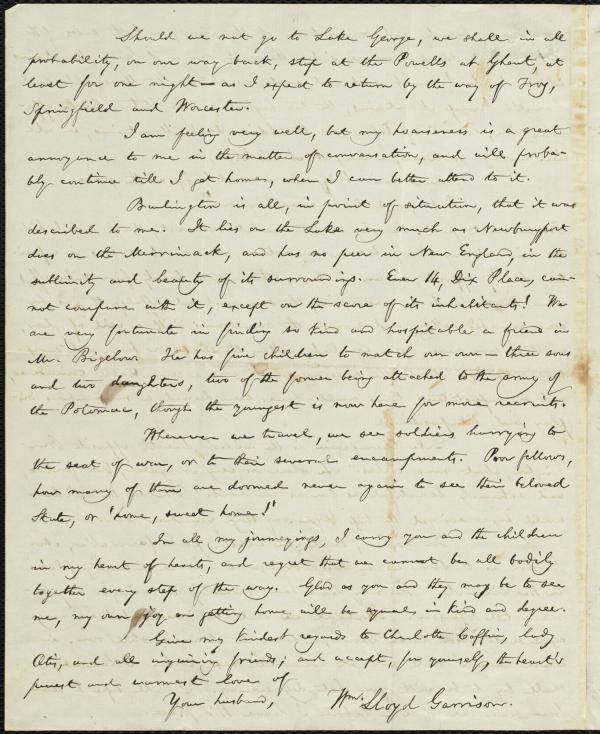 Should we not go to Lake George, we shall in all
probability, on our way back, stop at the Powells at Ghent, at
least for one night — as I expect to return by the way of Troy,
Springfield and Worcester.
I am feeling very well, but my hoarseness is a great
annoyance to me in the matter of conversation, and will proba-
bly continue till I get home, when I can better attend to it.
Burlington is all, in point of situation, that it was
described to me. It lies on the Lake very much as Newburyport
does on the Merrimack, and has no peer in New England, in the
sublimity and beauty of its surroundings. Even 14, Dix Place, can-
not compare with it, except on the score of its inhabitants! We
are very fortunate in finding so kind and hospitable a friend in
Mr. Bigelow. He has five children to match our own — three sons
and two daughters, two of the former being attached to the army of
the Potomac, though the youngest is now here for more recruits.
Wherever we travel, we see soldiers hurrying to
the seat of war, or to their several encampments. Poor fellows,
how many of them are doomed never again to see their beloved
State, or 'home, sweet home!'
In all my journeyings, I carry you and the children
in my heart of hearts, and regret that we cannot be all bodily
together every step of the way. Glad as you and they may be to see
me, my own joy on getting home will be equal in kind and degree.
Give my kindest regards to Charlotte Coffin, lady
Otis, and all inquiring friends; and accept, for yourself, the heart's
purest and warmest love of
Your husband,
Wm. Lloyd Garrison.